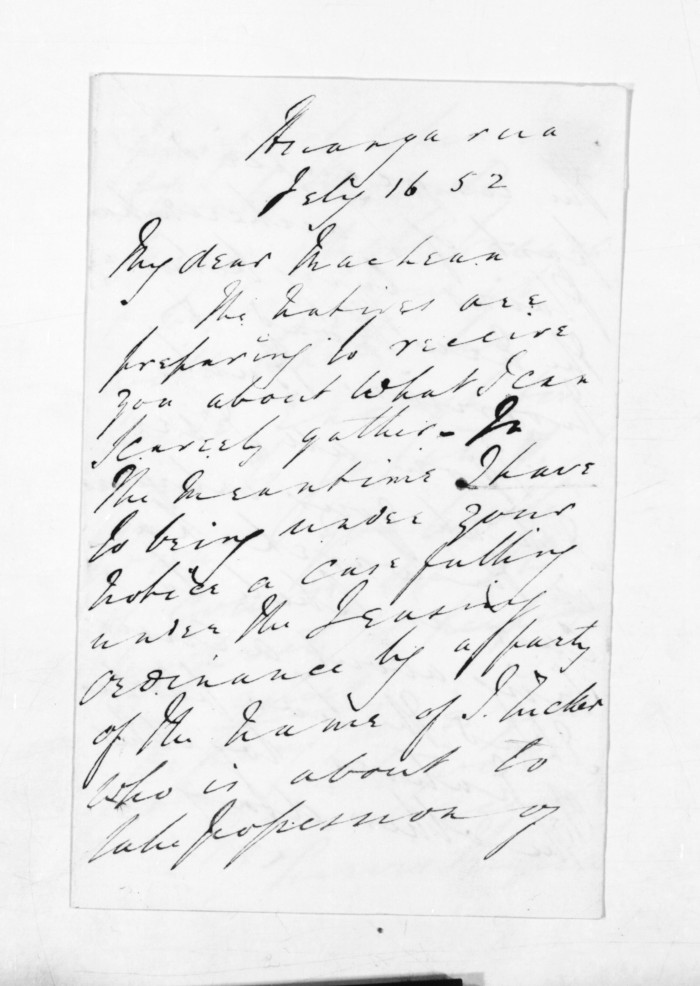 Huangarua
July 16 52
My dear MacLean
The Natives are
preparing to receive
you about what I can
scarcely gather - In
the meantime I have
to bring under your
notice a case falling
under the Leasing
Ordinance by a party
of the name of J. Tucker
who is about to
take possession of